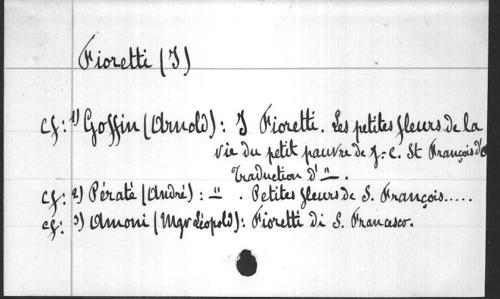 Fioretti (I)
cf: 1) Goffin (Arnold): I Fioretti. Les petites fleurs de la
vie du petit pauvre de J.-C. St François d'
Traduction d' " .
cf: 2) Pératé (André): " . Petites fleurs de S. François.....
cf: 3) Amoni (Mgr Léopold): Fioretti di S. Francesco.